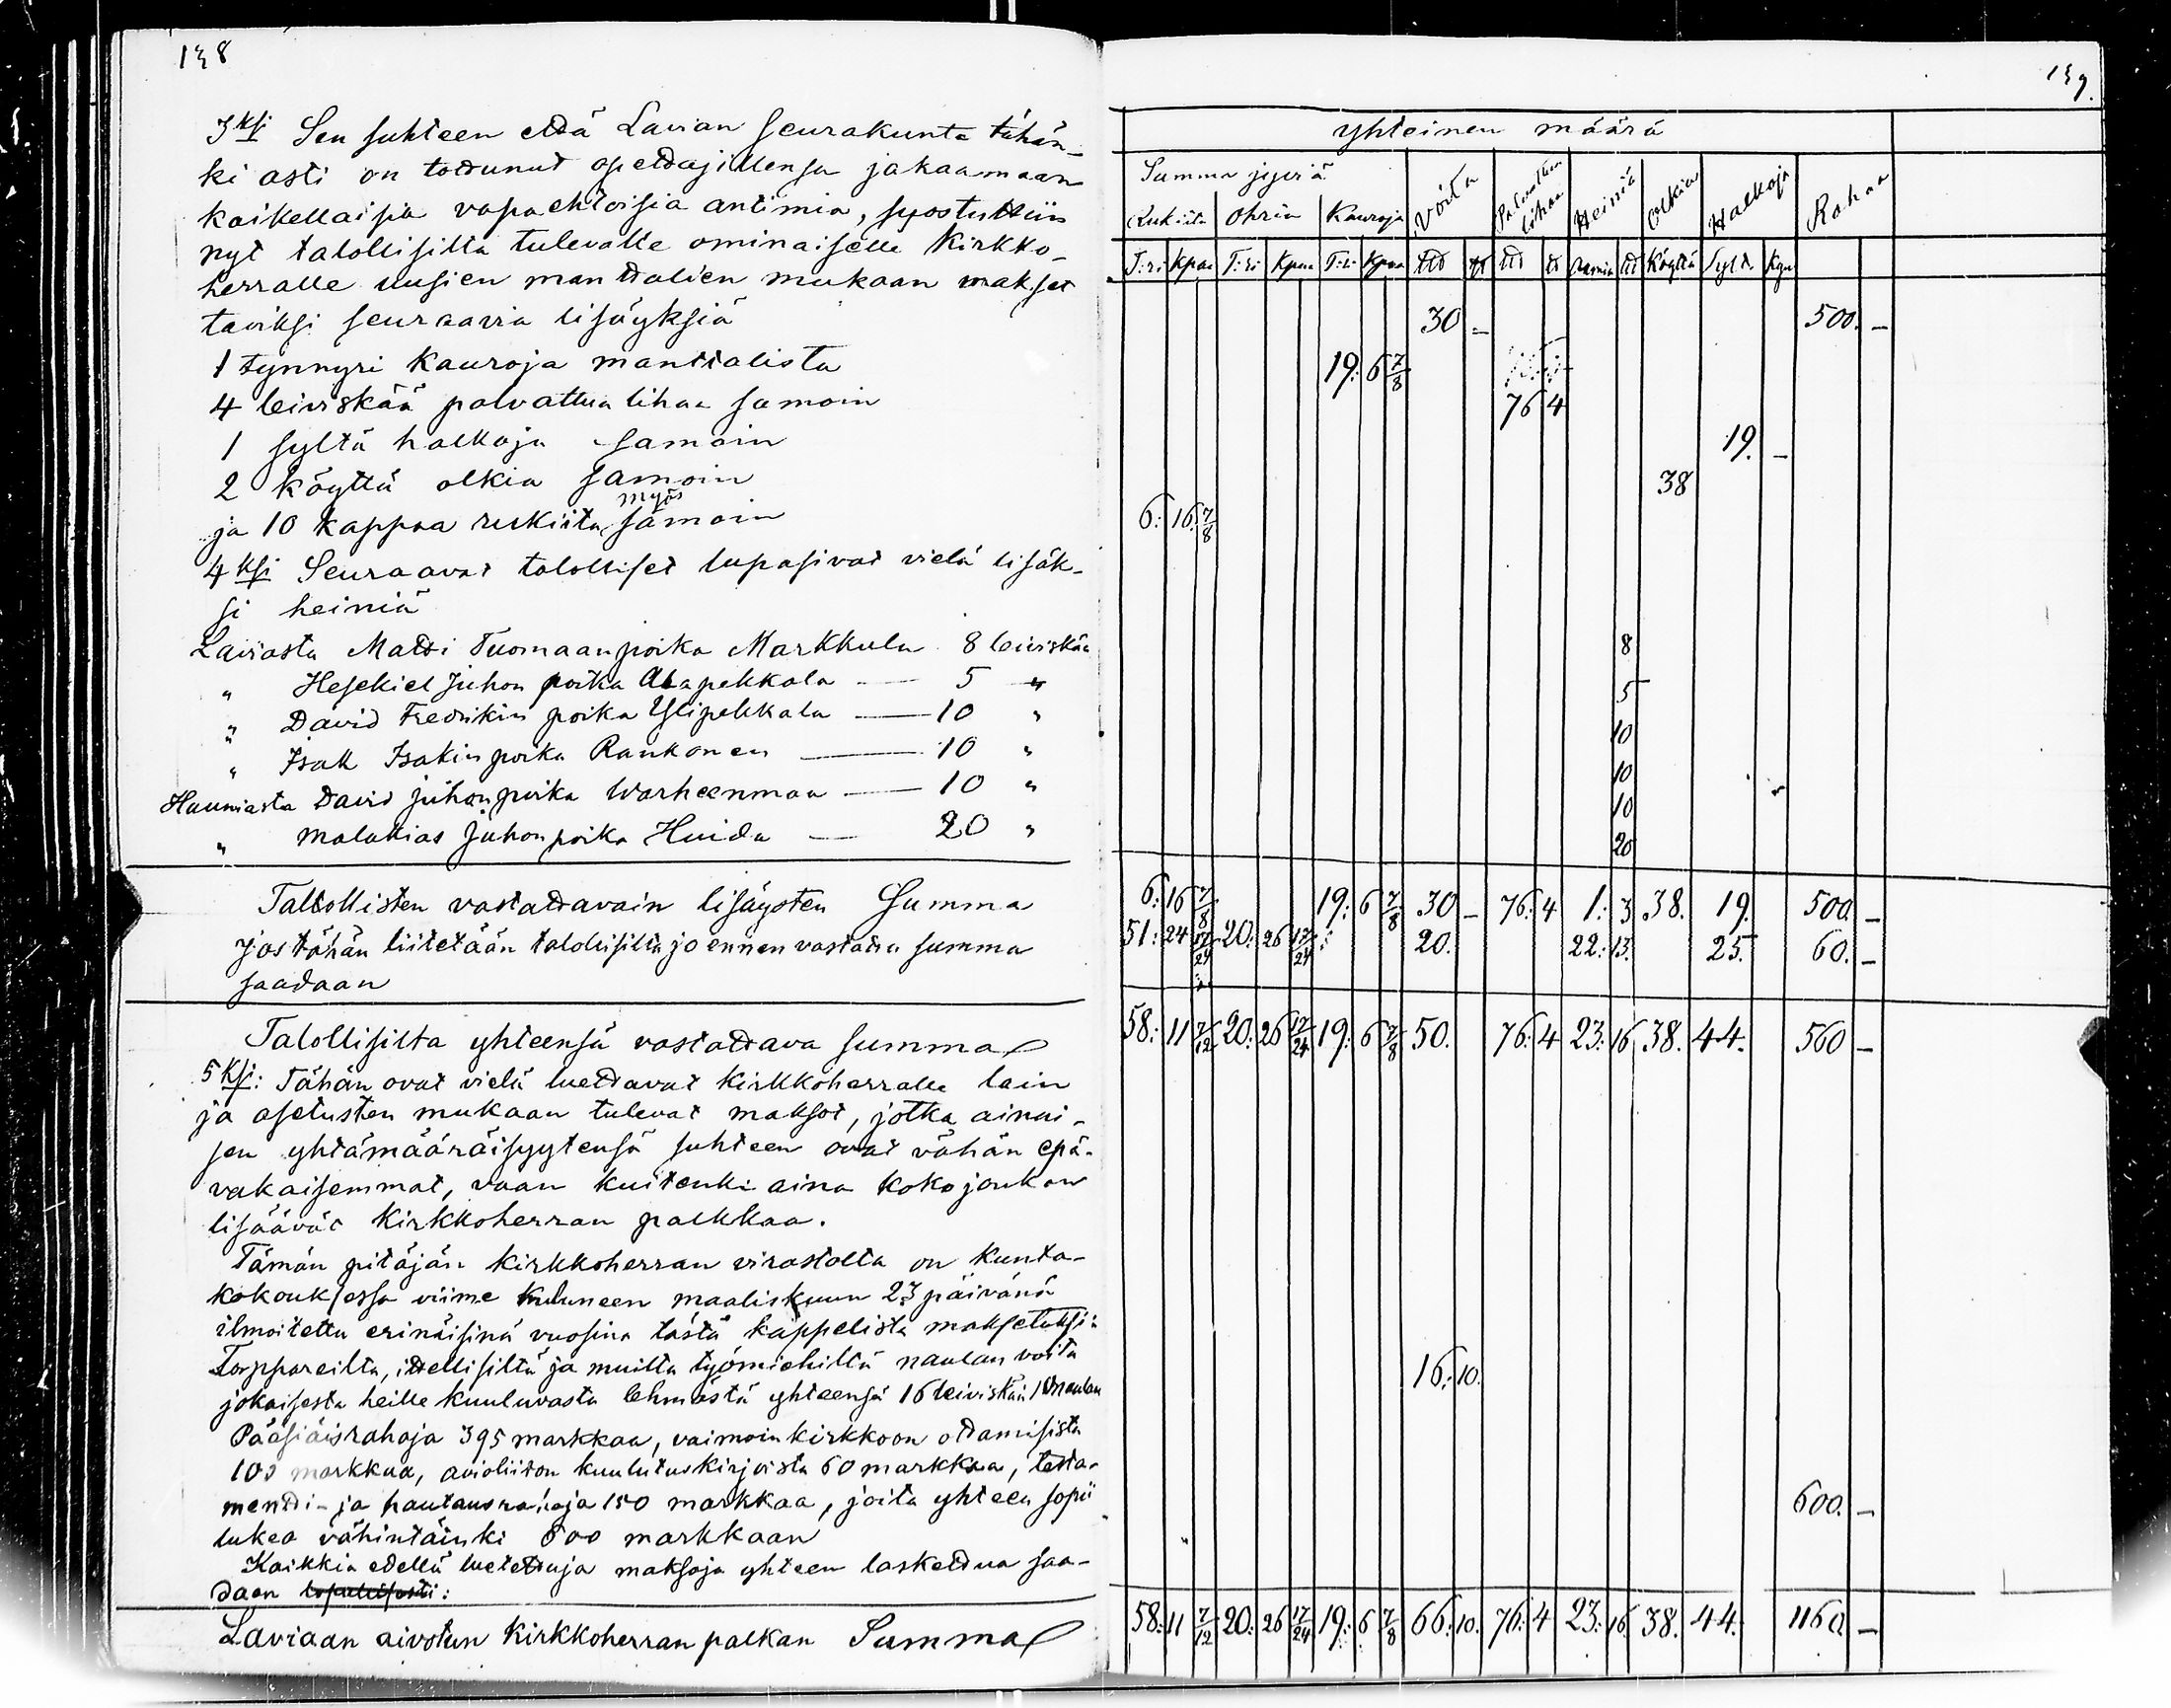 138
3ksi Sen suhteen että Lavian seurakunta tähän-
ki asti on tottunut opettajillensa jakaamaan
kaikellaisia vapaehtoisia antimia, suostuttiin
nyt talollisilta tulevalle ominaiselle Kirkko-
herralle uusien manttalien mukaan makset
taviksi seuraavia lisäyksiä
1 tynnyri Kauroja manttalista
4 leiviskää palvattua lihaa samoin
1 syltä halkoja samoin
2 köyttä olkia samoin
myös
ja 10 kappaa rukiita samoin
4ksi Seuraavat talolliset lupasivat vielä lisäk-
si heiniä
Laviasta Matti Tuomaanpoika Markkula 8 leiviskää
" Hesekiel Juhon poika Alapekkala — 5 "
" David Fredrikin poika Ylipekkala — 10 "
" Isak Isakinpoika Rankonen — 10 "
Hauniasta David Juhonpoika Warheenmaa — 10 "
" Malakias Juhonpoika Huida — 20 "
Tallollisten vastattavain lisäysten Summa
Jos tähän liitetään talollisilta jo ennen vastattu summa
saadaan
Talollisilta yhteensä vastattava summa
5ksi: Tähän ovat vielä luettavat kirkkoherralle lain
ja asetusten mukaan tulevat maksot, jotka ainui-
sen yhtämääräisyytensä suhteen ovat vähän epä-
vakaisemmat, vaan kuitenki aina koko joukon
lisäävät kirkkoherran palkkaa.
Tämän pitäjän kirkkoherran virastolta on kunta-
kokouksessa viime kuluneen maaliskuun 23 päivänä
ilmoitettu erinäisinä vuosina tästä kappelista maksetuksi:
Torppareilta, itsellisiltä ja muilta työmiehiltä naulan voita
jokaisesta heille kuuluvasta lehmästä yhteensä 16 leiviskää 10 naulaa
Pääsiäisrahoja 395 markkaa, vaimoin kirkkoon ottamisista
100 markkaa, avioliiton kuulutuskirjoista 60 markkaa, testa-
mentti- ja hautausrahoja 150 markkaa, joita yhteen sopii
lukea vähintäinki 600 markkaan
Kaikkia edellä luetettuja maksoja yhteen laskettua saa-
daan
Laviaan aivotun Kirkkoherran palkan Summa
139.
yhteinen määrä
Summa jyviä Voita Palvattua lihaa Heiniä Olkia Halkoja Rahaa
Rukiita Ohria Kauroja
T:ri Kpaa T:ri Kpaa T:ri Kpaa Köyttä Sylt.
30 — 500. —
19: 6 7/8
76 4
19. —
38
6: 16 7/8
8
5
10
10
10
20
6: 16 7/8 19: 6 7/8 30 — 76: 4 1: 3 38. 19. 500. —
51: 24 17/24 20: 26 17/24 20. 22: 13. 25. 60. —
58: 11 7/12 20: 26 17/24 19: 6 7/8 50. 76: 4 23: 16 38. 44. 560 —
16: 10.
600. —
58: 11 7/12 20: 26 17/24 19: 6 7/8 66: 10. 76: 4 23: 16. 38. 44. 1160. —